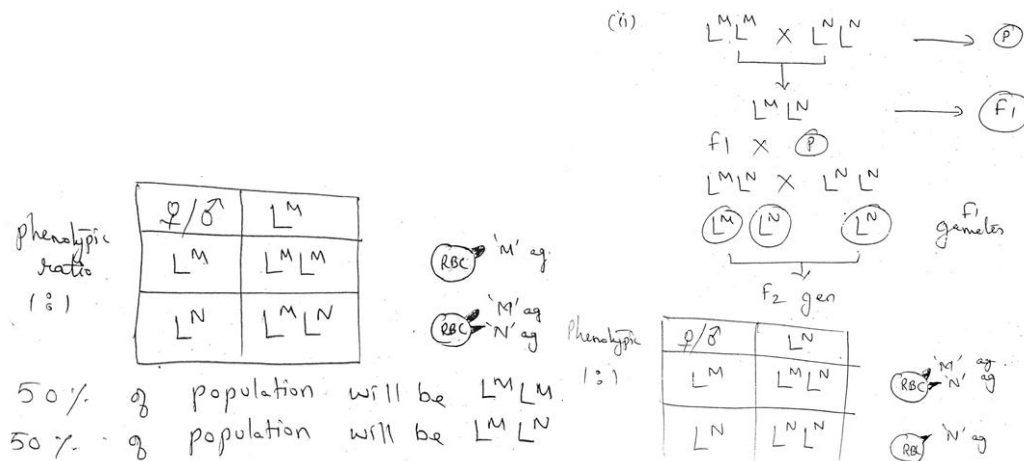 ♀/♂ L^M
phenotypic
ratio
1 : 1
L^M L^M L^M
RBC 'M' ag
L^N L^M L^N
RBC 'M' ag
'N' ag
50 % of population will be L^M L^M
50 % of population will be L^M L^N
(ii) L^M L^M X L^N L^N → P
L^M L^N → F1
f1 X P
L^M L^N X L^N L^N
L^M L^N L^N F1
gametes
F2 gen
Phenotypic
1 : 1
♀/♂ L^N
L^M L^M L^N
RBC 'M' ag
'N' ag
L^N L^N L^N
RBC 'N' ag